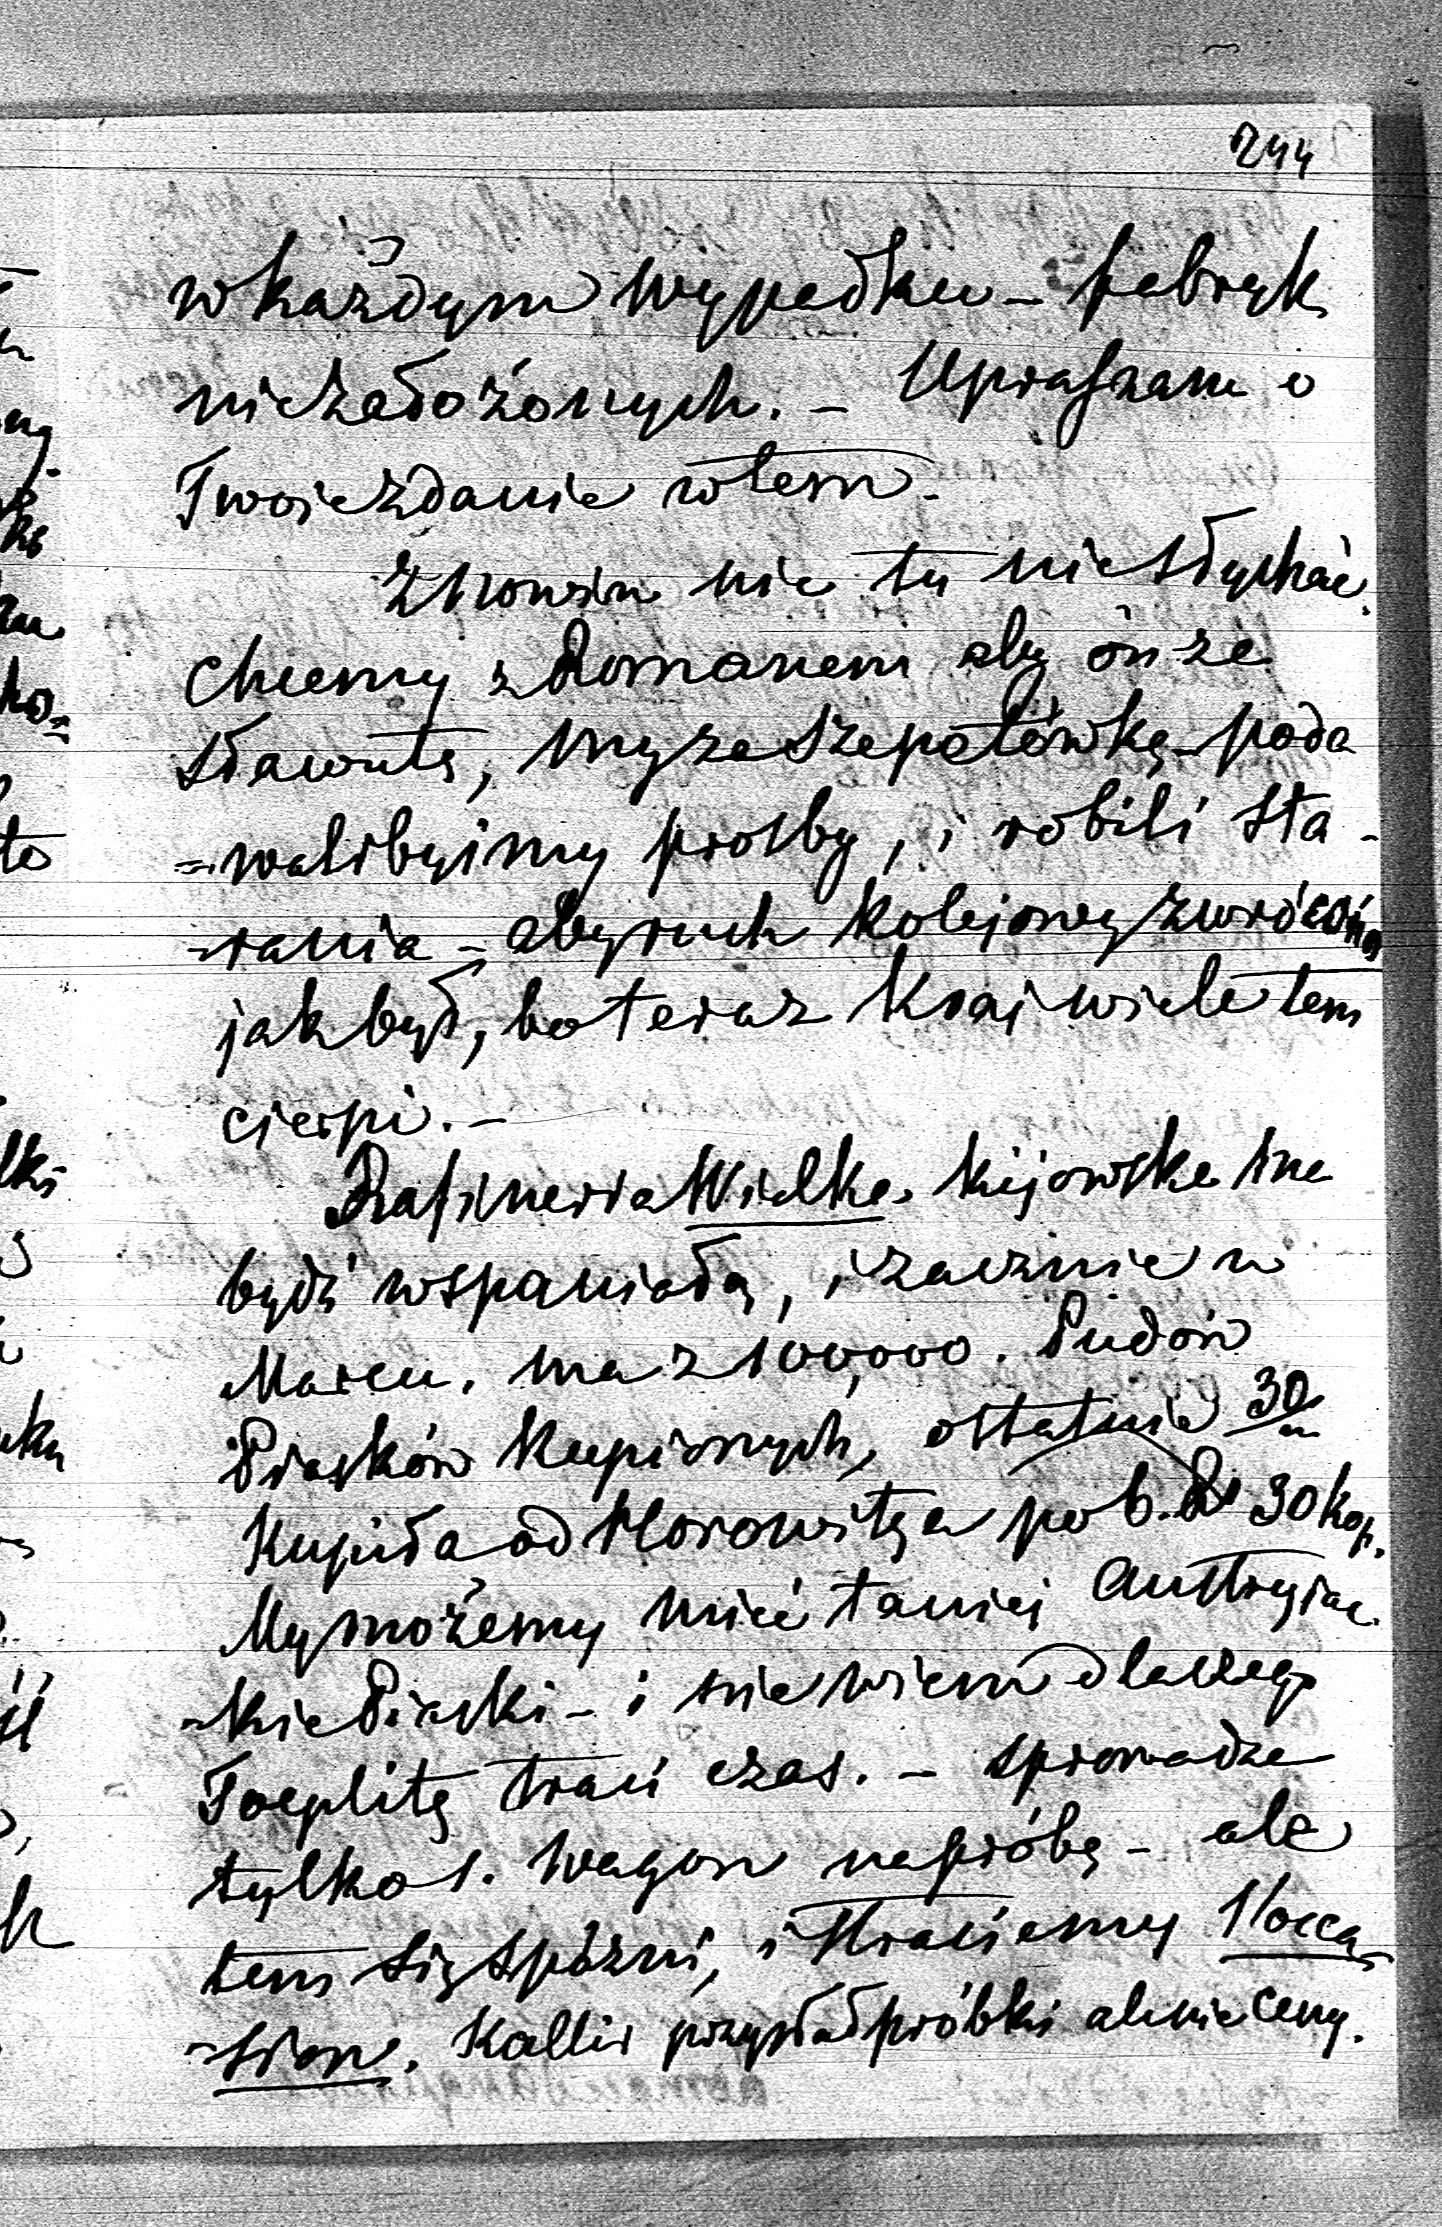 244
w każdym wypadku – fabryk
niezałożonych. – Upraszam o
Twoje zdanie w tem.
Z nowin nic tu nie słychać.
Chcemy z Romanem aby ón ze
Sławutą, my ze Szepetówką – poda
=walibyśmy prośby, i robili sta-
-rania – aby ruch kolejowy zwrócóno
jak był, bo teraz Kraj wiele tem
cierpi. –
Rafineria Wielka Kijowska ma
bydź wspaniałą, i zacznie w
Marcu. ma z 100,000. Pudów
Piasków kupionych, ostatnie 30/m
Kupiła od Horowitza po 6. R 30 kop.
My możemy mieć taniej Austryiac
-kie Piaski – i nie wiem dlaczego
Toeplitz traci czas. – sprowadza
tylko 1. wagon na próbę – ale
tem się spóźni, i stracimy l'occa
-sion. Kallir przysłał próbki ale nie ceny.